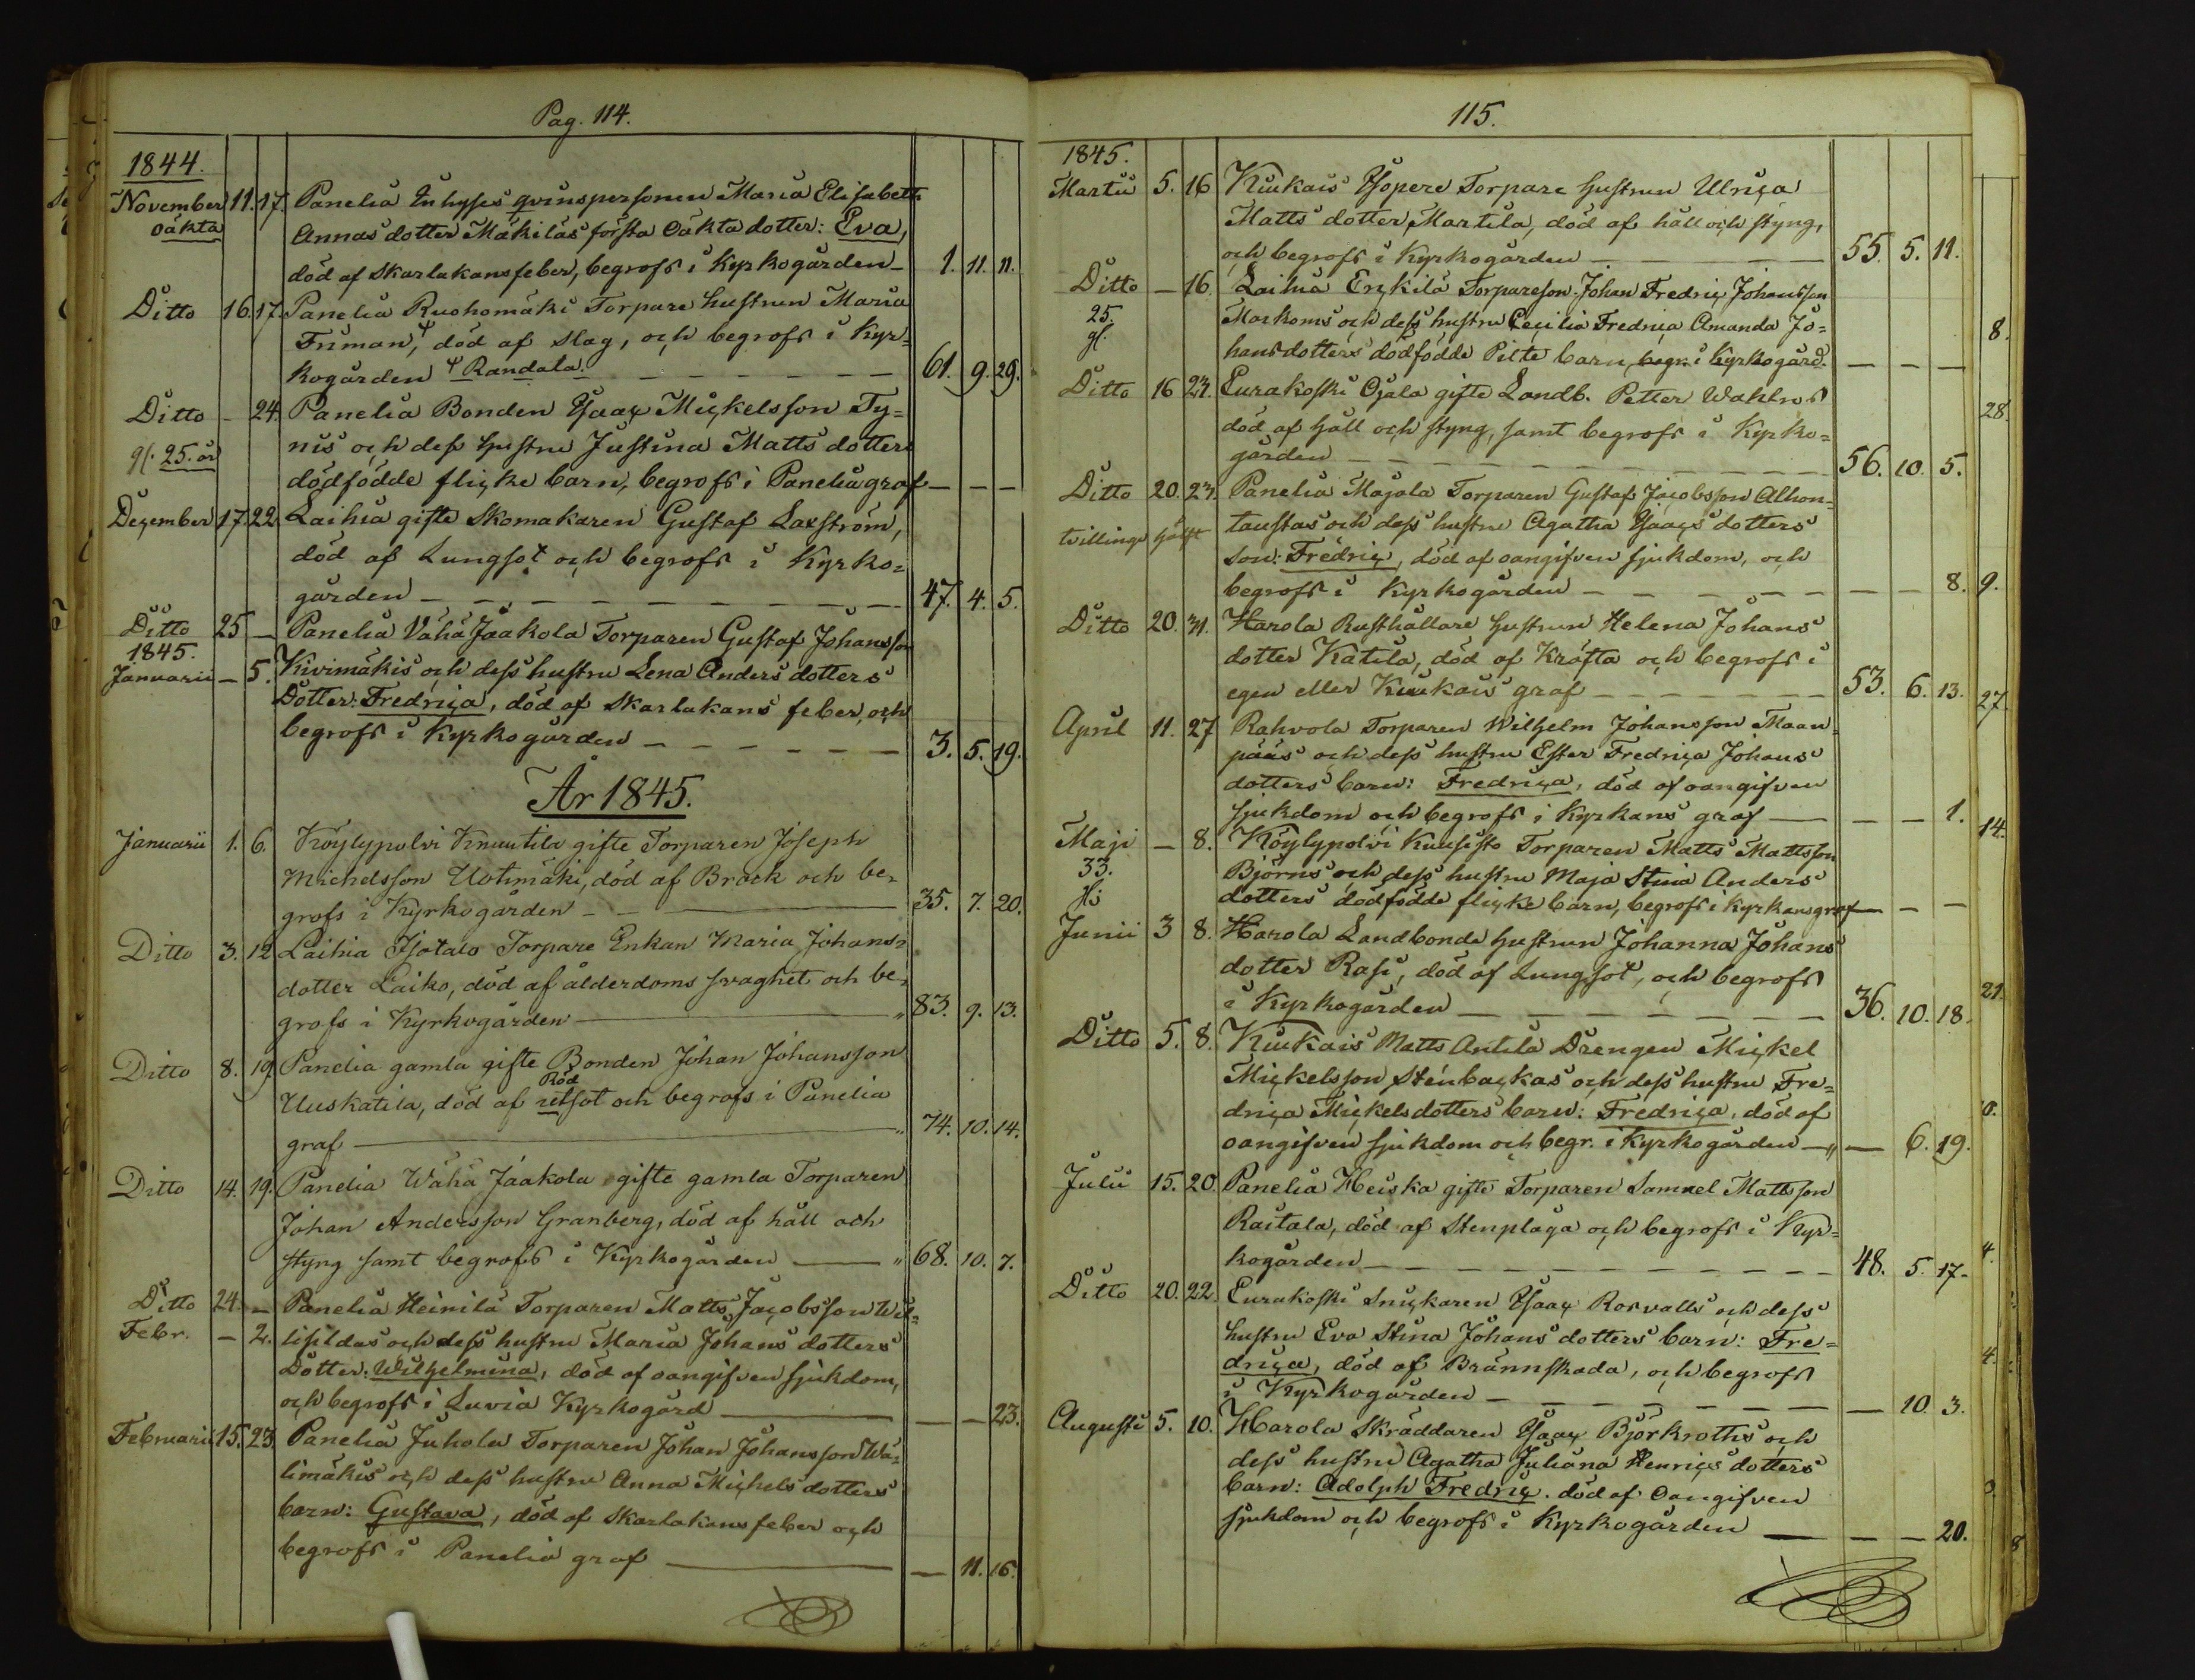 Pag. 114.
1844.
November 11. 17. Panelia Inhyses qvinspersonen Maria Elisabeth
oäkta Annas dotter Mäkiläs första oäkta dotter: Eva,
död af skarlakansfeber, begrofs i Kyrkogården — 1. 11. 11.
Ditto 16. 17. Panelia Ruohomäki Torpare hustrun Maria
Friman, död af slag, och begrofs i Kyr=
kogården Randala. — 61. 9. 29.
Ditto - 24. Panelia Bonden Isaac Mickelsson Ty=
nis och dess hustru Justina Matts dotters
gl. 25. år dödfödde flicke barn, begrofs i Panelia graf — — —
December 17. 22. Laihia gifte Skomakaren Gustaf Laxström,
död af Lungsot och begrofs i Kyrko=
gården — 47. 4. 5.
Ditto 25 — Panelia Vähä Jaakola Torparen Gustaf Johansson
1845.
Januarii — 5. Kivimäkis och dess hustru Lena Anders dotters
Dotter: Fredrica, död af skarlakans feber, och
begrofs i Kyrkogården — 3. 5. 19.
År 1845.
Januarii 1. 6. Köylypolvi Knuutila gifte Torparen Joseph
Michelsson Uotimäki, död af Bråck och be=
grofs i Kyrkogården — 35. 7. 20.
Ditto 3. 12 Laihia Isotalo Torpare Enkan Maria Johans=
dotter Laiko, död af ålderdoms svaghet och be=
grofs i Kyrkogården — 83. 9. 13.
Ditto 8. 19 Panelia gamla gifte Bonden Johan Johansson
Röd
Uuskatila, död af sot och begrofs i Panelia
graf — 74. 10. 14.
Ditto 14. 19. Panelia Wähä Jaakola gifte gamla Torparen
Johan Andersson Granberg, död af håll och
styng samt begrofs i Kyrkogården — 68. 10. 7.
Ditto 24. — Panelia Heinilä Torparen Matts Jacobsson
Febr. — 2. och dess hustru Maria Johans dotters
Dotter: Wilhelmina, död af oangifven sjukdom,
och begrofs i Luvia Kyrkogård — — — 23.
Februarii 15. 23. Panelia Juhola Torparen Johan Johansson Wä=
limäkis och dess hustru Anna Michels dotters
barn: Gustava, död af Skarlakansfeber och
begrofs i Panelia graf — — 11. 16.
115.
1845.
Martii 5. 16 Kiukais Torpare hustrun Ulrica
Matts dotter Martila, död af håll och styng,
och begrofs i Kyrkogården — 55. 5. 11.
Ditto — 16. Laihia Erkilä Torpareson Johan Fredric Johansson
25. Markoms och dess hustru Cecilia Fredrica Amanda Jo=
gl. hansdotters dödfödde Pilte barn, begr. i Kyrkogård. — — —
Ditto 16 23. Eurakoski Ojala gifte Landb. Petter Wahlros
död af håll och styng, samt begrofs i Kyrko=
gården — 56. 10. 5.
Ditto 20. 23. Panelia Majala Torparen Gustaf Jacobsson Alhon=
tvillinge hälft taustas och dess hustru Agatha Isaacs dotters
son: Fredric, död af oangifven sjukdom, och
begrofs i Kyrkogården — — — 8.
Ditto 20. 31. Harola Rusthållare hustrun Helena Johans
dotter Katila, död af Kräfta och begrofs i
egen eller Kiukais graf — 53. 6. 13.
April 11. 27 Rahvola Torparen Wilhelm Johansson Maan=
pääs och dess hustru Ester Fredrica Johans
dotters barn: Fredrica, död af oangifven
sjukdom och begrofs i Kyrkans graf — — — 1.
Maji — 8. Köylypolvi Kuusisto Torparen Matts Mattsson
33. Björns och dess hustru Maja Stina Anders
dotters dödfödde flicke barn, begrofs i Kyrkans graf — — —
Junii 3 8. Harola Landbonde hustrun Johanna Johans
dotter Rasi, död af Lungsot, och begrofs
i Kyrkogården — 36. 10. 18.
Ditto 5. 8. Kiukais Matts Antila Drengen Mickel
Mickelsson Stenbackas och dess hustru Fre=
drica Mickelsdotters barn: Fredrica, död af
oangifven sjukdom och begr. i Kyrkogården — — 6. 19.
Julii 15. 20. Panelia Heiska gifte Torparen Samuel Mattsson
Raitala, död af Stenplåga och begrofs i Kyr=
kogården — 48. 5. 17.
Ditto 20. 22. Eurakoski Snickaren Isaac Rosvalls och dess
hustru Eva Stina Johans dotters barn: Fre=
drica, död af Brännskada, och begrofs
i Kyrkogården — — 10. 3.
Augusti 5. 10. Harola Skräddaren Isaac Björkroths och
dess hustru Agatha Juliana Henrics dotters
barn: Adolph Fredric. död af oangifven
sjukdom och begrofs i Kyrkogården — — — 20.
8.
28.
9.
27.
14.
21.
4.
4.
8